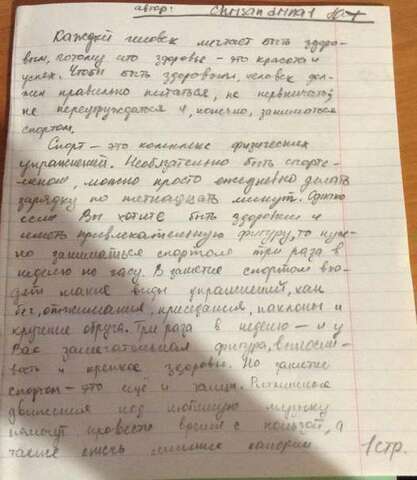 автор:
Каждый человек мечтает быть здоро-
вым, потому что здоровье - это красота и
успех. Чтобы быть здоровым, человек дол-
жен правильно питаться, не нервничать,
не переутруждаться и, конечно, заниматься
спортом.
Спорт - это комплекс физических
упражнений. Необязательно быть спортс-
меном, можно просто ежедневно делать
зарядку по пятнадцать минут. Однако
если Вы хотите быть здоровым и
иметь привлекательную фигуру, то нуж-
но заниматься спортом три раза в
неделю по часу. В занятие спортом вхо-
дят такие виды упражнений, как
бег, отжимания, приседания, наклоны и
кручение обруча. Три раза в неделю - и у
Вас замечательная фигура, вынос
вость и крепкое здоровье. Но занятие
спортом - это ещё и танцы. Ритмичные
движения под любимую музыку
помогут провести время с пользой, а
также сжечь лишние калории
1стр.